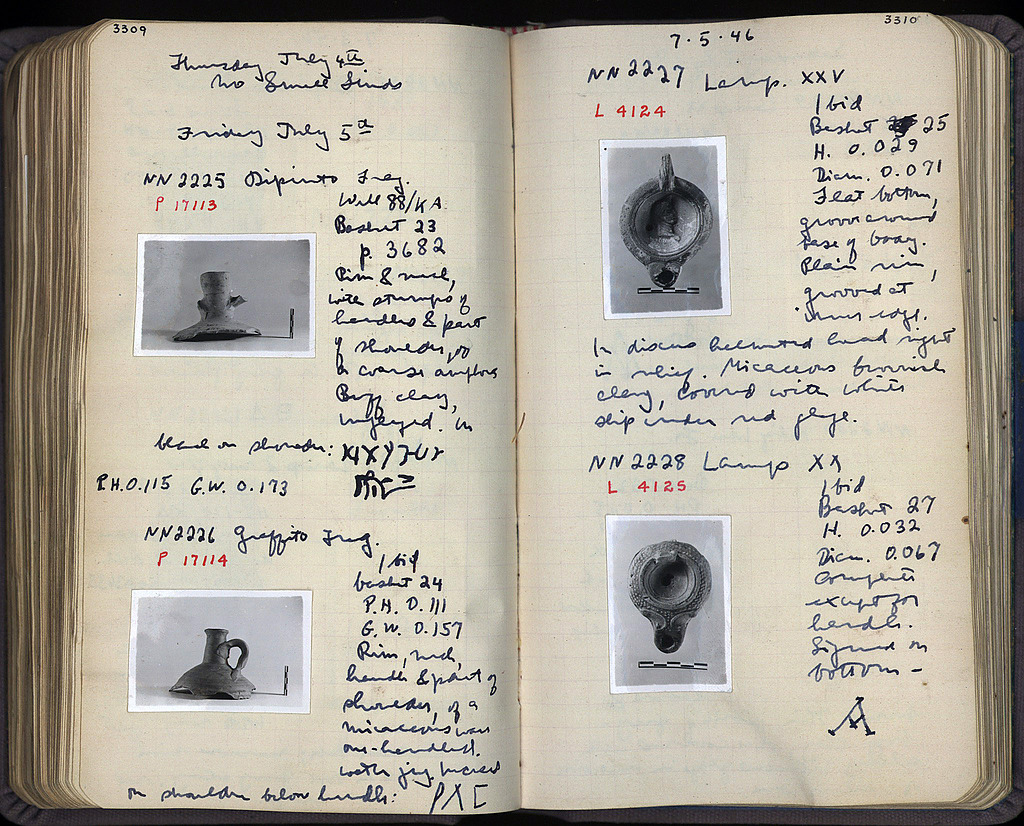 3309
Thursday July 4th
No Small Finds
Friday July 5th
NN 2225 Dipinto Frag.
P 17113
Well 88/KA
Basket 23
p. 3682
Rim & neck,
with stumps of
handles & part
of shoulder, of
a coarse amphora
Buff clay,
unglazed. In
black on shoulder:
P.H. 0.115 G.W. 0.173
NN 2226 Graffito Frag.
P 17114
Ibid
basket 24
P.H. 0.111
G.W. 0.157
Rim, neck,
handle & part of
shoulder, of a
micaceous ware
one-handled
water jug. Incised
on shoulder below handle:
3310
7·5·46
NN 2227 Lamp. XXV
L 4124
Ibid
Basket 25
H. 0.029
Diam. 0.071
Flat bottom,
groove around
base of body.
Plain rim,
grooved at
inner edge.
In discus helmeted head right
in relief. Micaceous brownish
clay, covered with white
slip under red glaze.
NN 2228 Lamp XX
L 4125
Ibid
Basket 27
H. 0.032
Diam. 0.067
Complete
except for
handle.
Signed on
bottom –
A